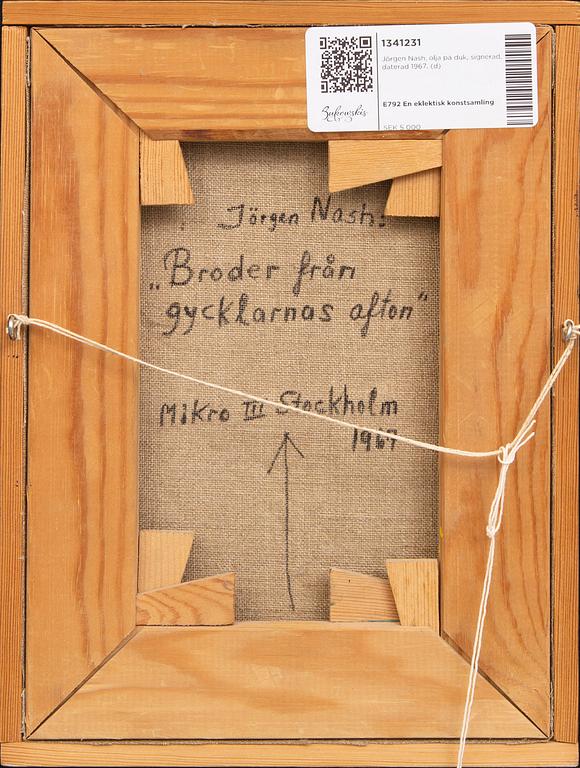 1341231
Jörgen Nash, olja på duk, signerad,
daterad 1967. (d)
Bukowskis
E792 En eklektisk konstsamling
SEK 5 000
Jörgen Nash:
„Broder från
gycklarnas afton"
Mikro III Stockholm
1967